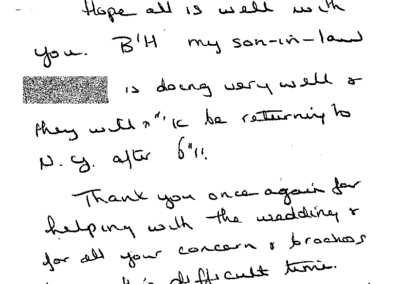 Hope all is well with
you. B'H my son-in-law
is doing very well &
they will be returning to
N.Y. after
Thank you once again for
helping with the wedding &
for all your concern & brochos
difficult time.